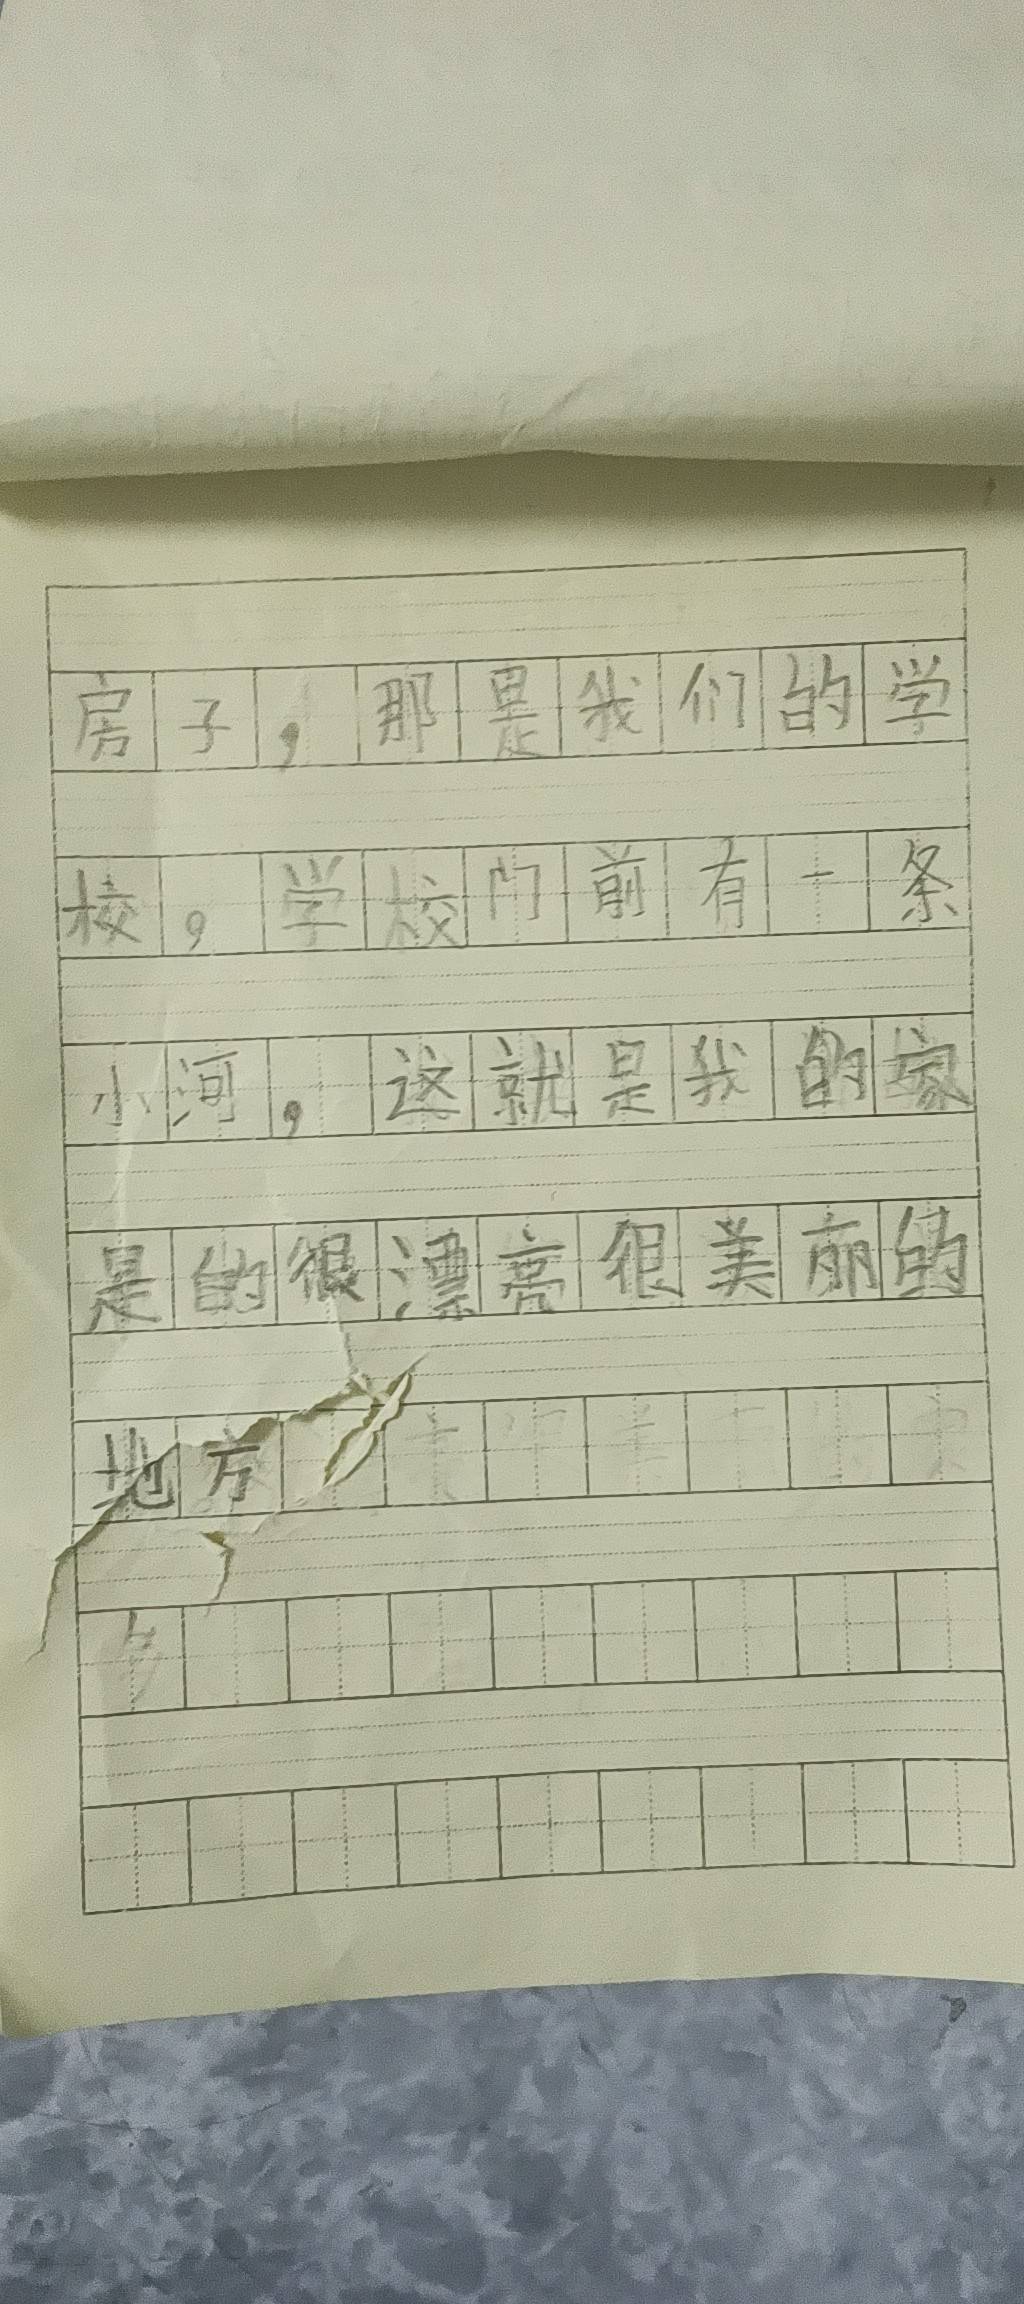 房子，那是我们的学
校，学校门前有一条
小河，这就是我的家
是的很漂亮很美丽的
地方